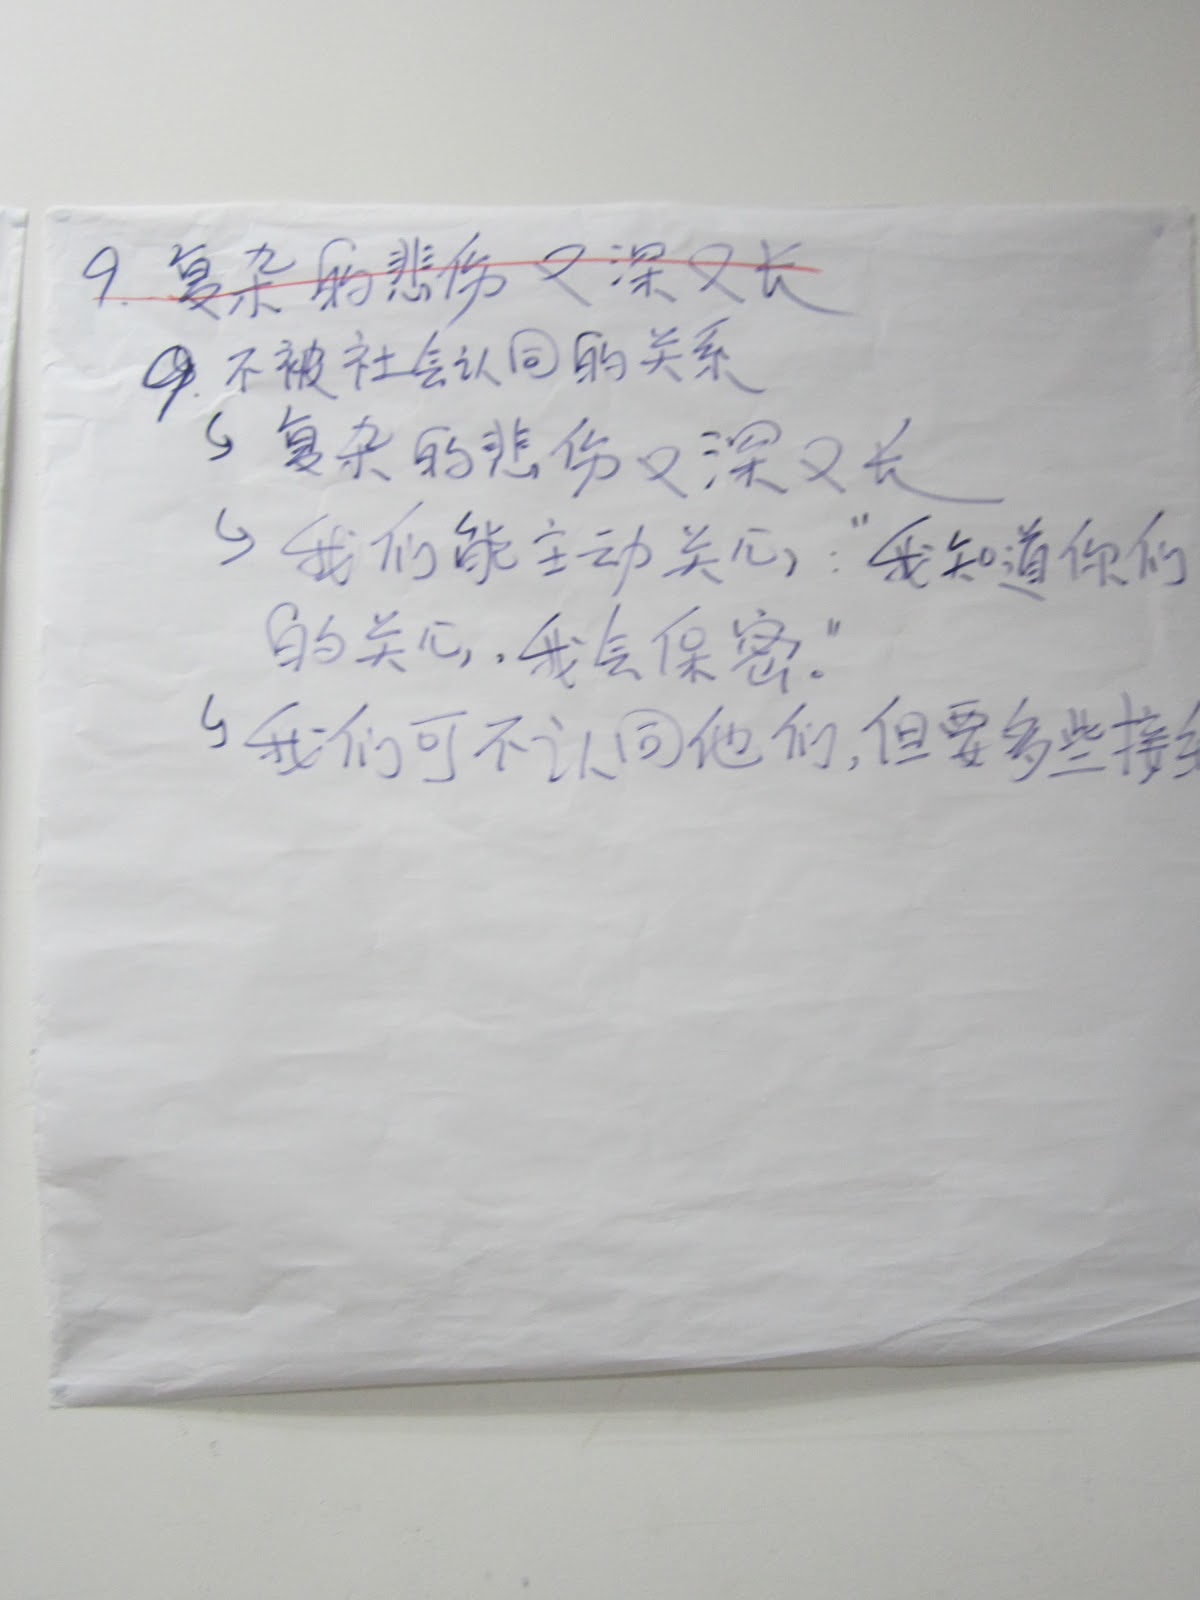 9. 复杂的悲伤又深又长
9. 不被社会认同的关系
↳ 复杂的悲伤又深又长
↳ 我们能主动关心:"我知道你们
的关心,我会保密."
↳ 我们可不认同他们,但要多些接